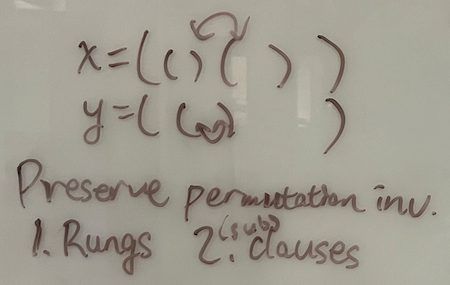 x=(()( ) )
y=( ( ) )
Preserve permutation inv.
1. Rungs 2. (sub) clauses